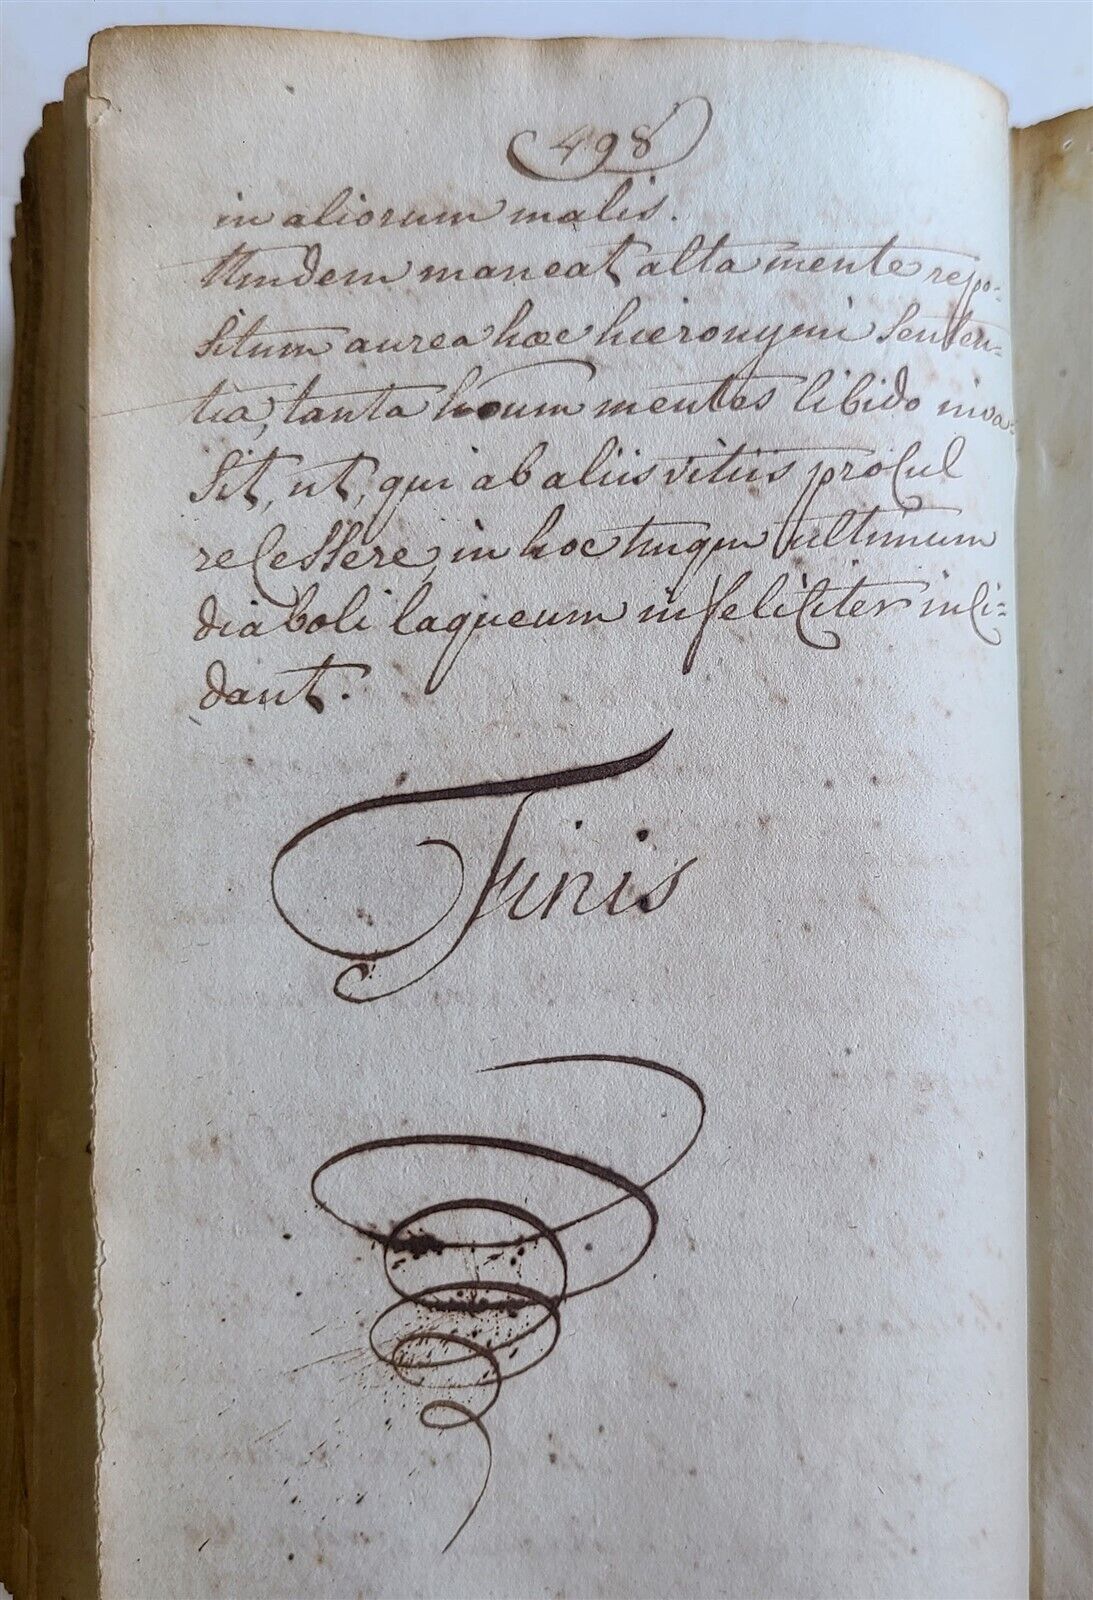 498
in aliorum malis.
tandem maneat alta mente repo=
situm aurea hæc hieronymi senten=
tia, tanta houm mentes libido inva=
sit, ut, qui ab aliis vitiis procul
recessere, in hoc tuqm ultimum
diaboli laqueum infeliciter inci=
dant.
Finis